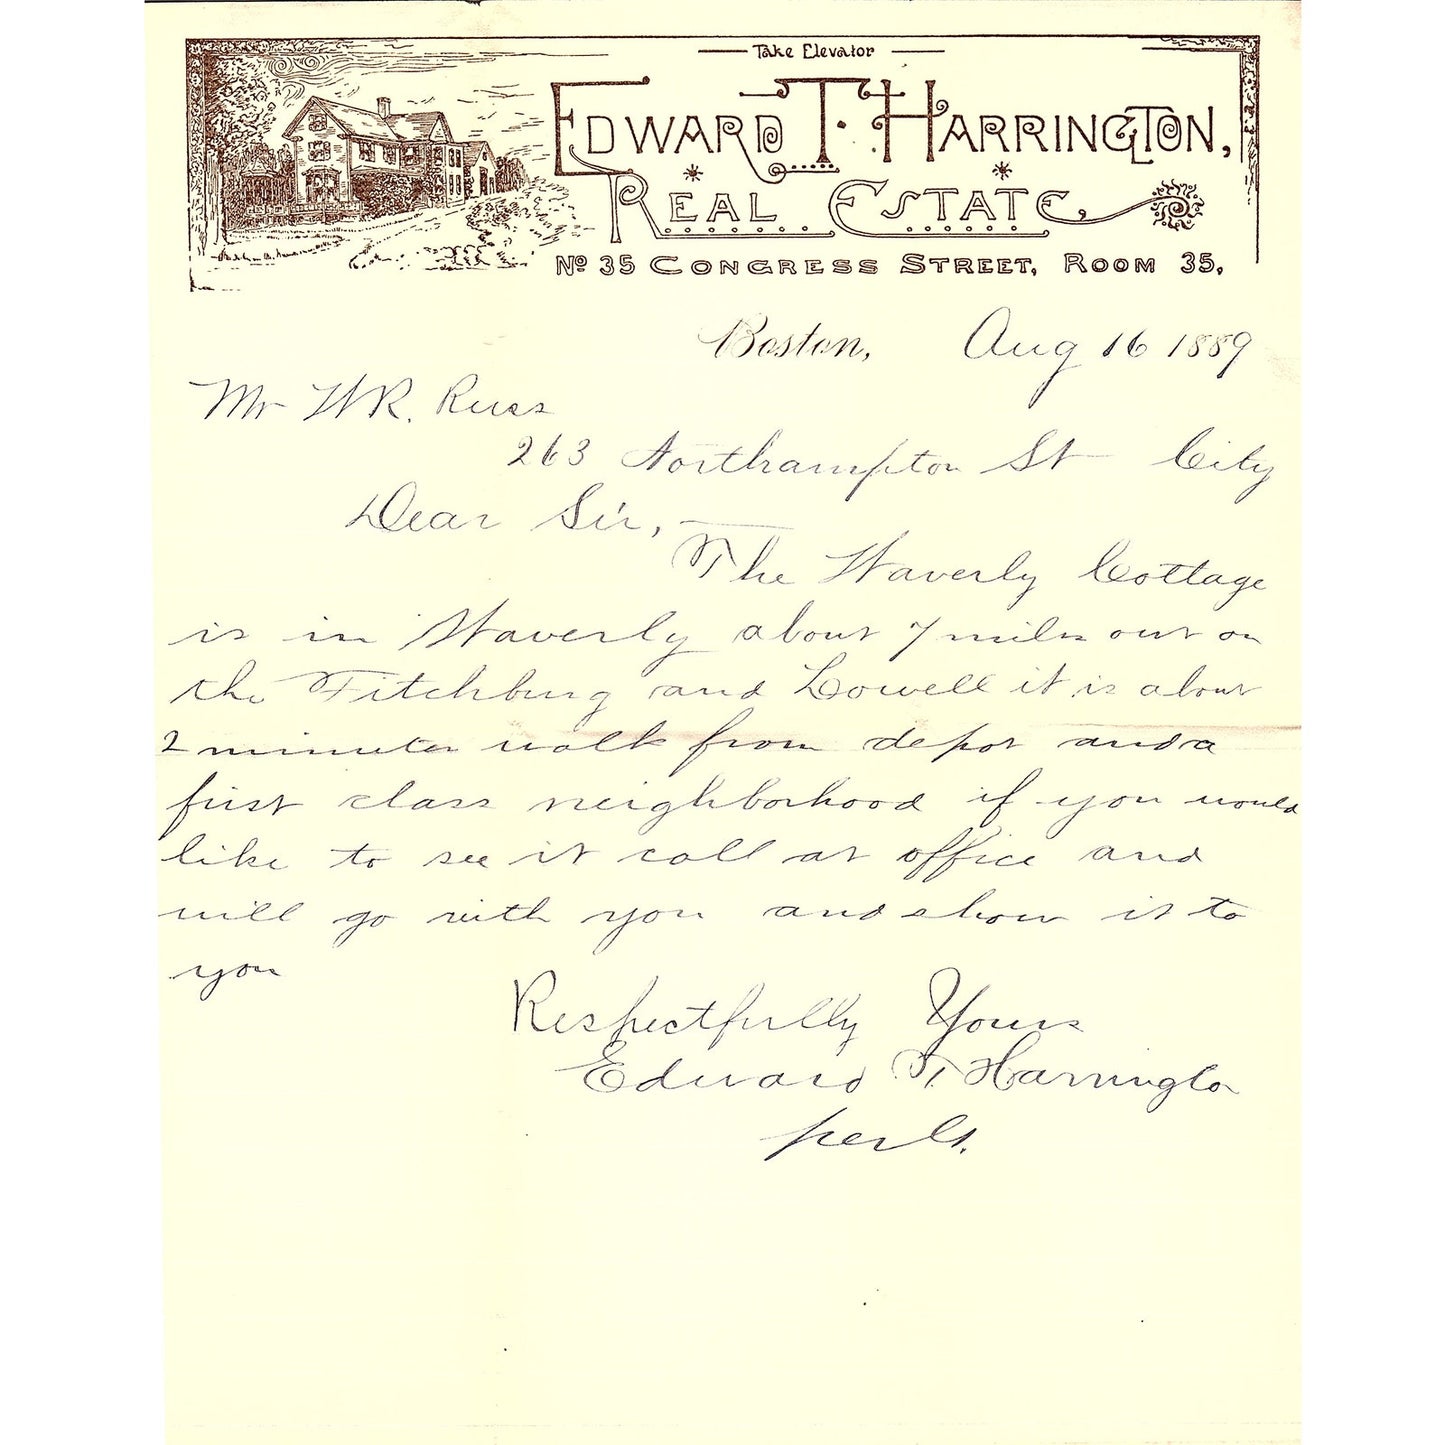 Take Elevator
EDWARD T. HARRINGTON,
REAL ESTATE,
No 35 CONGRESS STREET, ROOM 35,
Boston, Aug 16 1889
Mr W R. Russ
263 Northampton St City
Dear Sir,
The Waverly Cottage
is in Waverly about 7 miles out on
the Fitchburg and Lowell it is about
2 minutes walk from depot and a
first class neighborhood if you would
like to see it call at office and
will go with you and show it to
you
Respectfully Yours
Edward T. Harrington
per